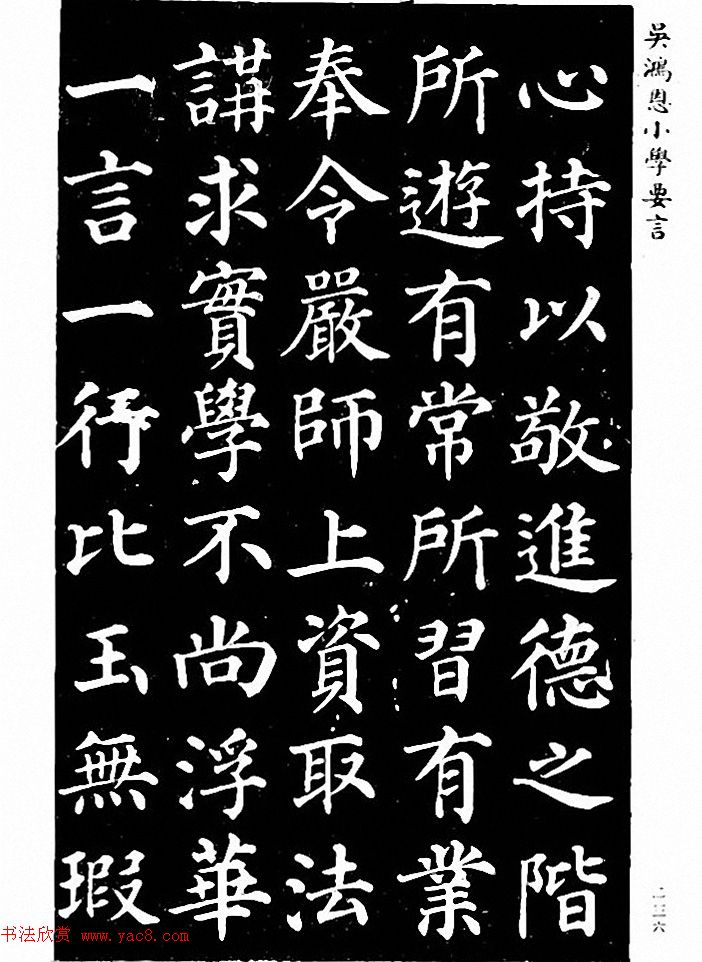 吳鴻恩小學要言
心持以敬進德之階
所遊有常所習有業
奉令嚴師上資取法
講求實學不尚浮華
一言一行比玉無瑕
二三六
书法欣赏 www.yac8.com